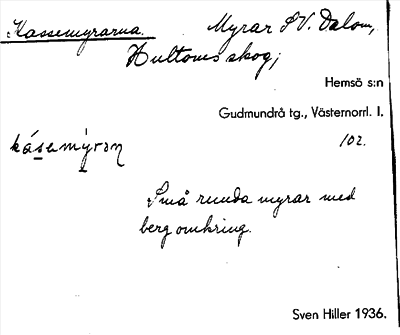 Kassemyrarna. Myrar SV. Dalom,
Hultoms skog;
Hemsö s:n
Gudmundrå tg., Västernorrl. l.
kásemỳrən 102.
Små runda myrar med
berg omkring.
Sven Hiller 1936.